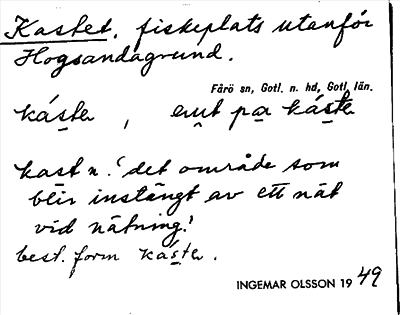 Kastet, fiskeplats utanför
Hogsandagrund.
Fårö sn, Gotl. n. hd, Gotl. län.
káste, ew̯t pa káste
kast n. 'det område som
blir instängt av ett nät
vid nätning.'
best. form káste.
INGEMAR OLSSON 1949